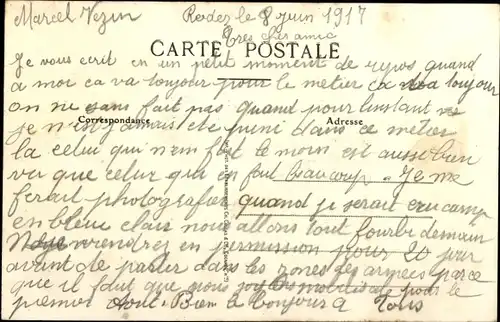 Marcel Vezin Rodez le 8 juin 1917
Très chers amis
CARTE POSTALE
Je vous ecrit en un petit moment de repos quand
a moi ca va toujour pour le metier ca va toujour
on ne sans fait pas quand pour linstant
Correspondance Adresse
je n'en jamais ete puni dans ce metier
la celui qui n'en fait le moin est aussi bien
vu que celui qui en fait beaucoup. Je me
ferait photografier quand je serait au camp
en bleu clair nous allons tout fourbi demain
Nous viendrez en permission pour 20 jour
avant de partir dans les zones des armees parce
que il faut que nous mobilises pour le
premier Aout. Bien le bonjour a Tous